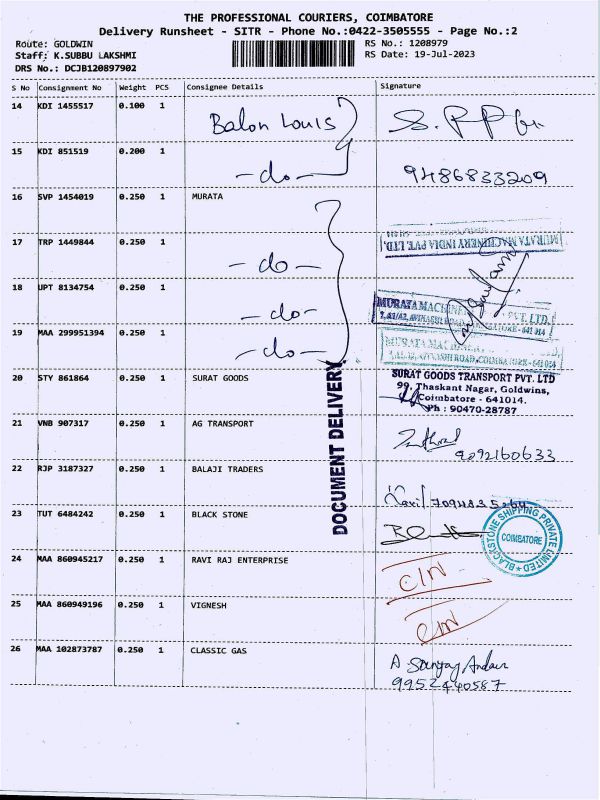 THE PROFESSIONAL COURIERS, COIMBATORE
Delivery Runsheet - SITR - Phone No.:0422-3505555 - Page No.:2
Route: GOLDWIN RS No.: 1208979
Staff: K.SUBBU LAKSHMI RS Date: 19-Jul-2023
DRS No.: DCJB120897902
S No Consignment No Weight PCS Consignee Details Signature
14 KDI 1455517 0.100 1 Balon Louis
15 KDI 851519 0.200 1 -do- 9486833209
16 SVP 1454019 0.250 1 MURATA
MURATA MACHINERY INDIA PVT. LTD.
17 TRP 1449844 0.250 1 -do-
18 UPT 8134754 0.250 1 -do-
MURATA MACHINE PVT. LTD.
19 MAA 299951394 0.250 1 -do-
20 STY 861864 0.250 1 SURAT GOODS
SURAT GOODS TRANSPORT PVT. LTD
99, Thaskant Nagar, Goldwins,
Coimbatore - 641014.
Ph : 90470-28787
21 VNB 907317 0.250 1 AG TRANSPORT
9092160633
22 RJP 3187327 0.250 1 BALAJI TRADERS
23 TUT 6484242 0.250 1 BLACK STONE
BLACKSTONE SHIPPING PRIVATE LIMITED
COIMBATORE
24 MAA 860945217 0.250 1 RAVI RAJ ENTERPRISE
25 MAA 860949196 0.250 1 VIGNESH
26 MAA 102873787 0.250 1 CLASSIC GAS
9952440587
DOCUMENT DELIVERY